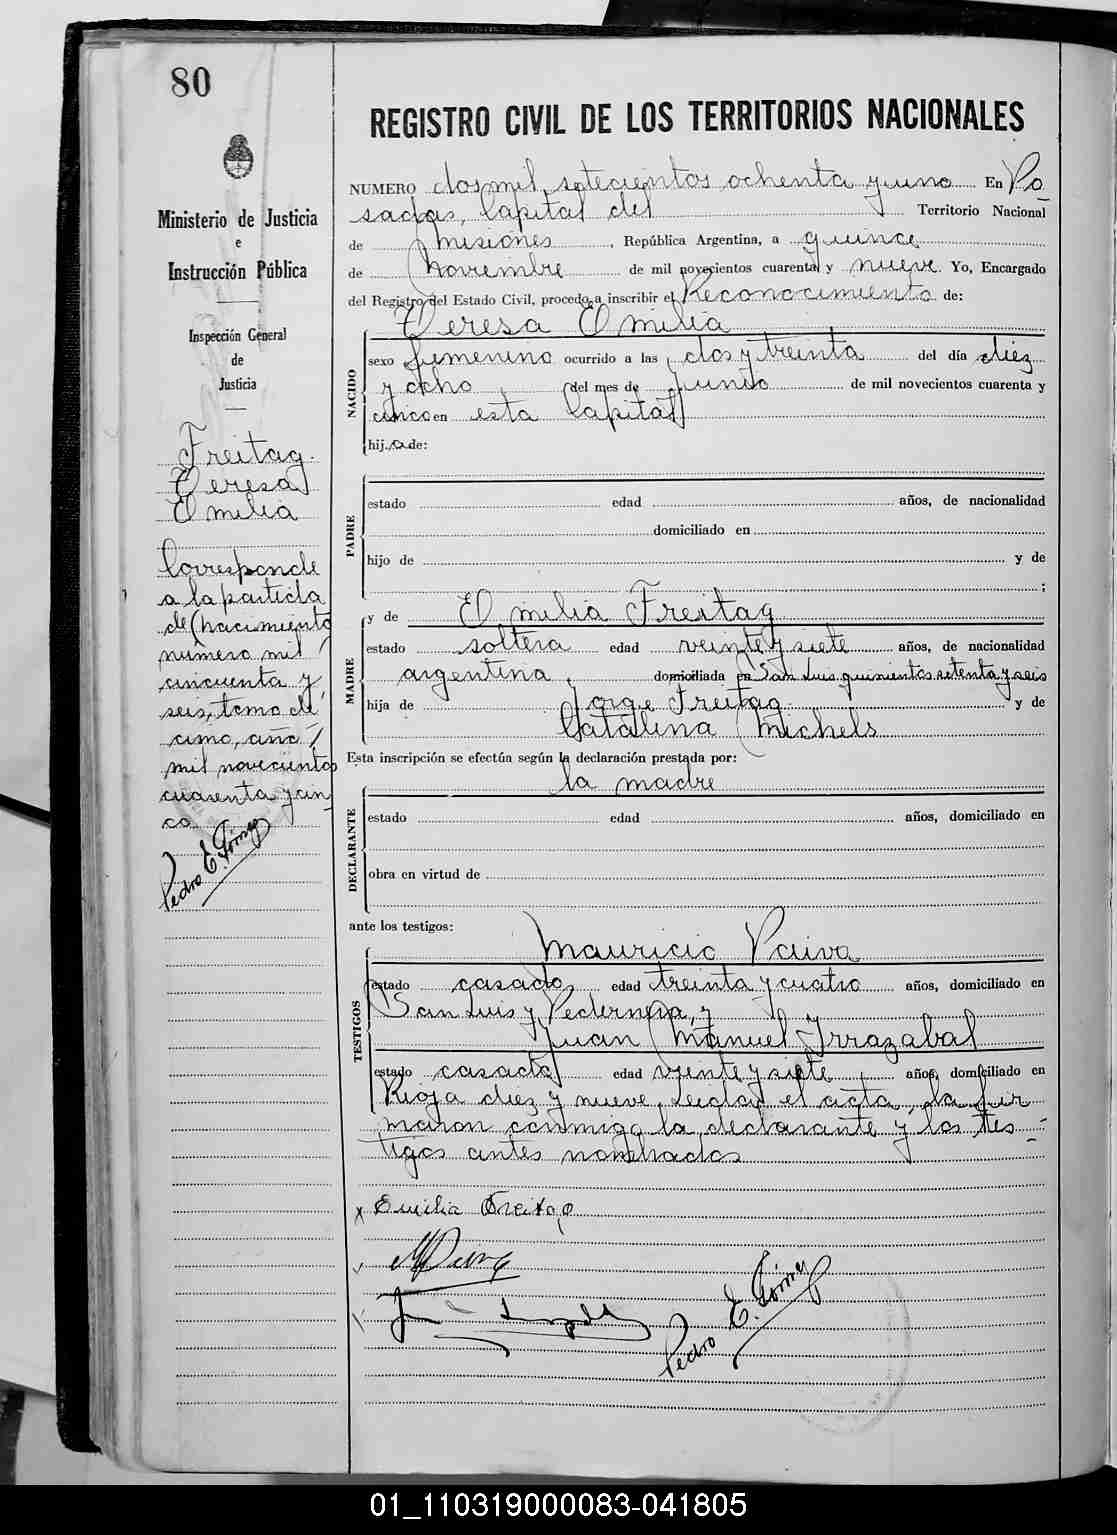 80
REGISTRO CIVIL DE LOS TERRITORIOS NACIONALES
Ministerio de Justicia
e
Instrucción Pública
Inspección General
de
Justicia
Freitag.
Teresa
Emilia
Corresponde
a la partida
de nacimiento
número mil
cincuenta y
seis, tomo dé
cimo, año
mil novecientos
cuarenta y cin
co.
Pedro E. Gómez
NUMERO dos mil setecientos ochenta y uno En Po
sadas, Capital del Territorio Nacional
de Misiones, República Argentina, a quince
de Noviembre de mil novecientos cuarenta y nueve. Yo, Encargado
del Registro del Estado Civil, procedo a inscribir el Reconocimiento de:
Teresa Emilia
NACIDO
sexo femenino ocurrido a las dos y treinta del día diez
y ocho del mes de Junio de mil novecientos cuarenta y
cinco en esta Capital
hij a de:
PADRE
estado edad años, de nacionalidad
domiciliado en
hijo de y de
;
y de Emilia Freitag
MADRE
estado soltera edad veinte y siete años, de nacionalidad
argentina, domiciliada en San Luis quinientos setenta y seis
hija de Jorge Freitag y de
Catalina Michels
Esta inscripción se efectúa según la declaración prestada por:
la madre
DECLARANTE
estado edad años, domiciliado en
obra en virtud de
ante los testigos:
Mauricio Paiva
TESTIGOS
estado casado, edad treinta y cuatro años, domiciliado en
San Luis y Pedernera, y
Juan Manuel Irrazabal
estado casado edad veinte y siete años, domiciliado en
Rioja diez y nueve. Leida el acta, la fir
maron conmigo la declarante y los tes
tigos antes nombrados
x Emilia Freitag
Pedro E. Gómez
01_110319000083-041805